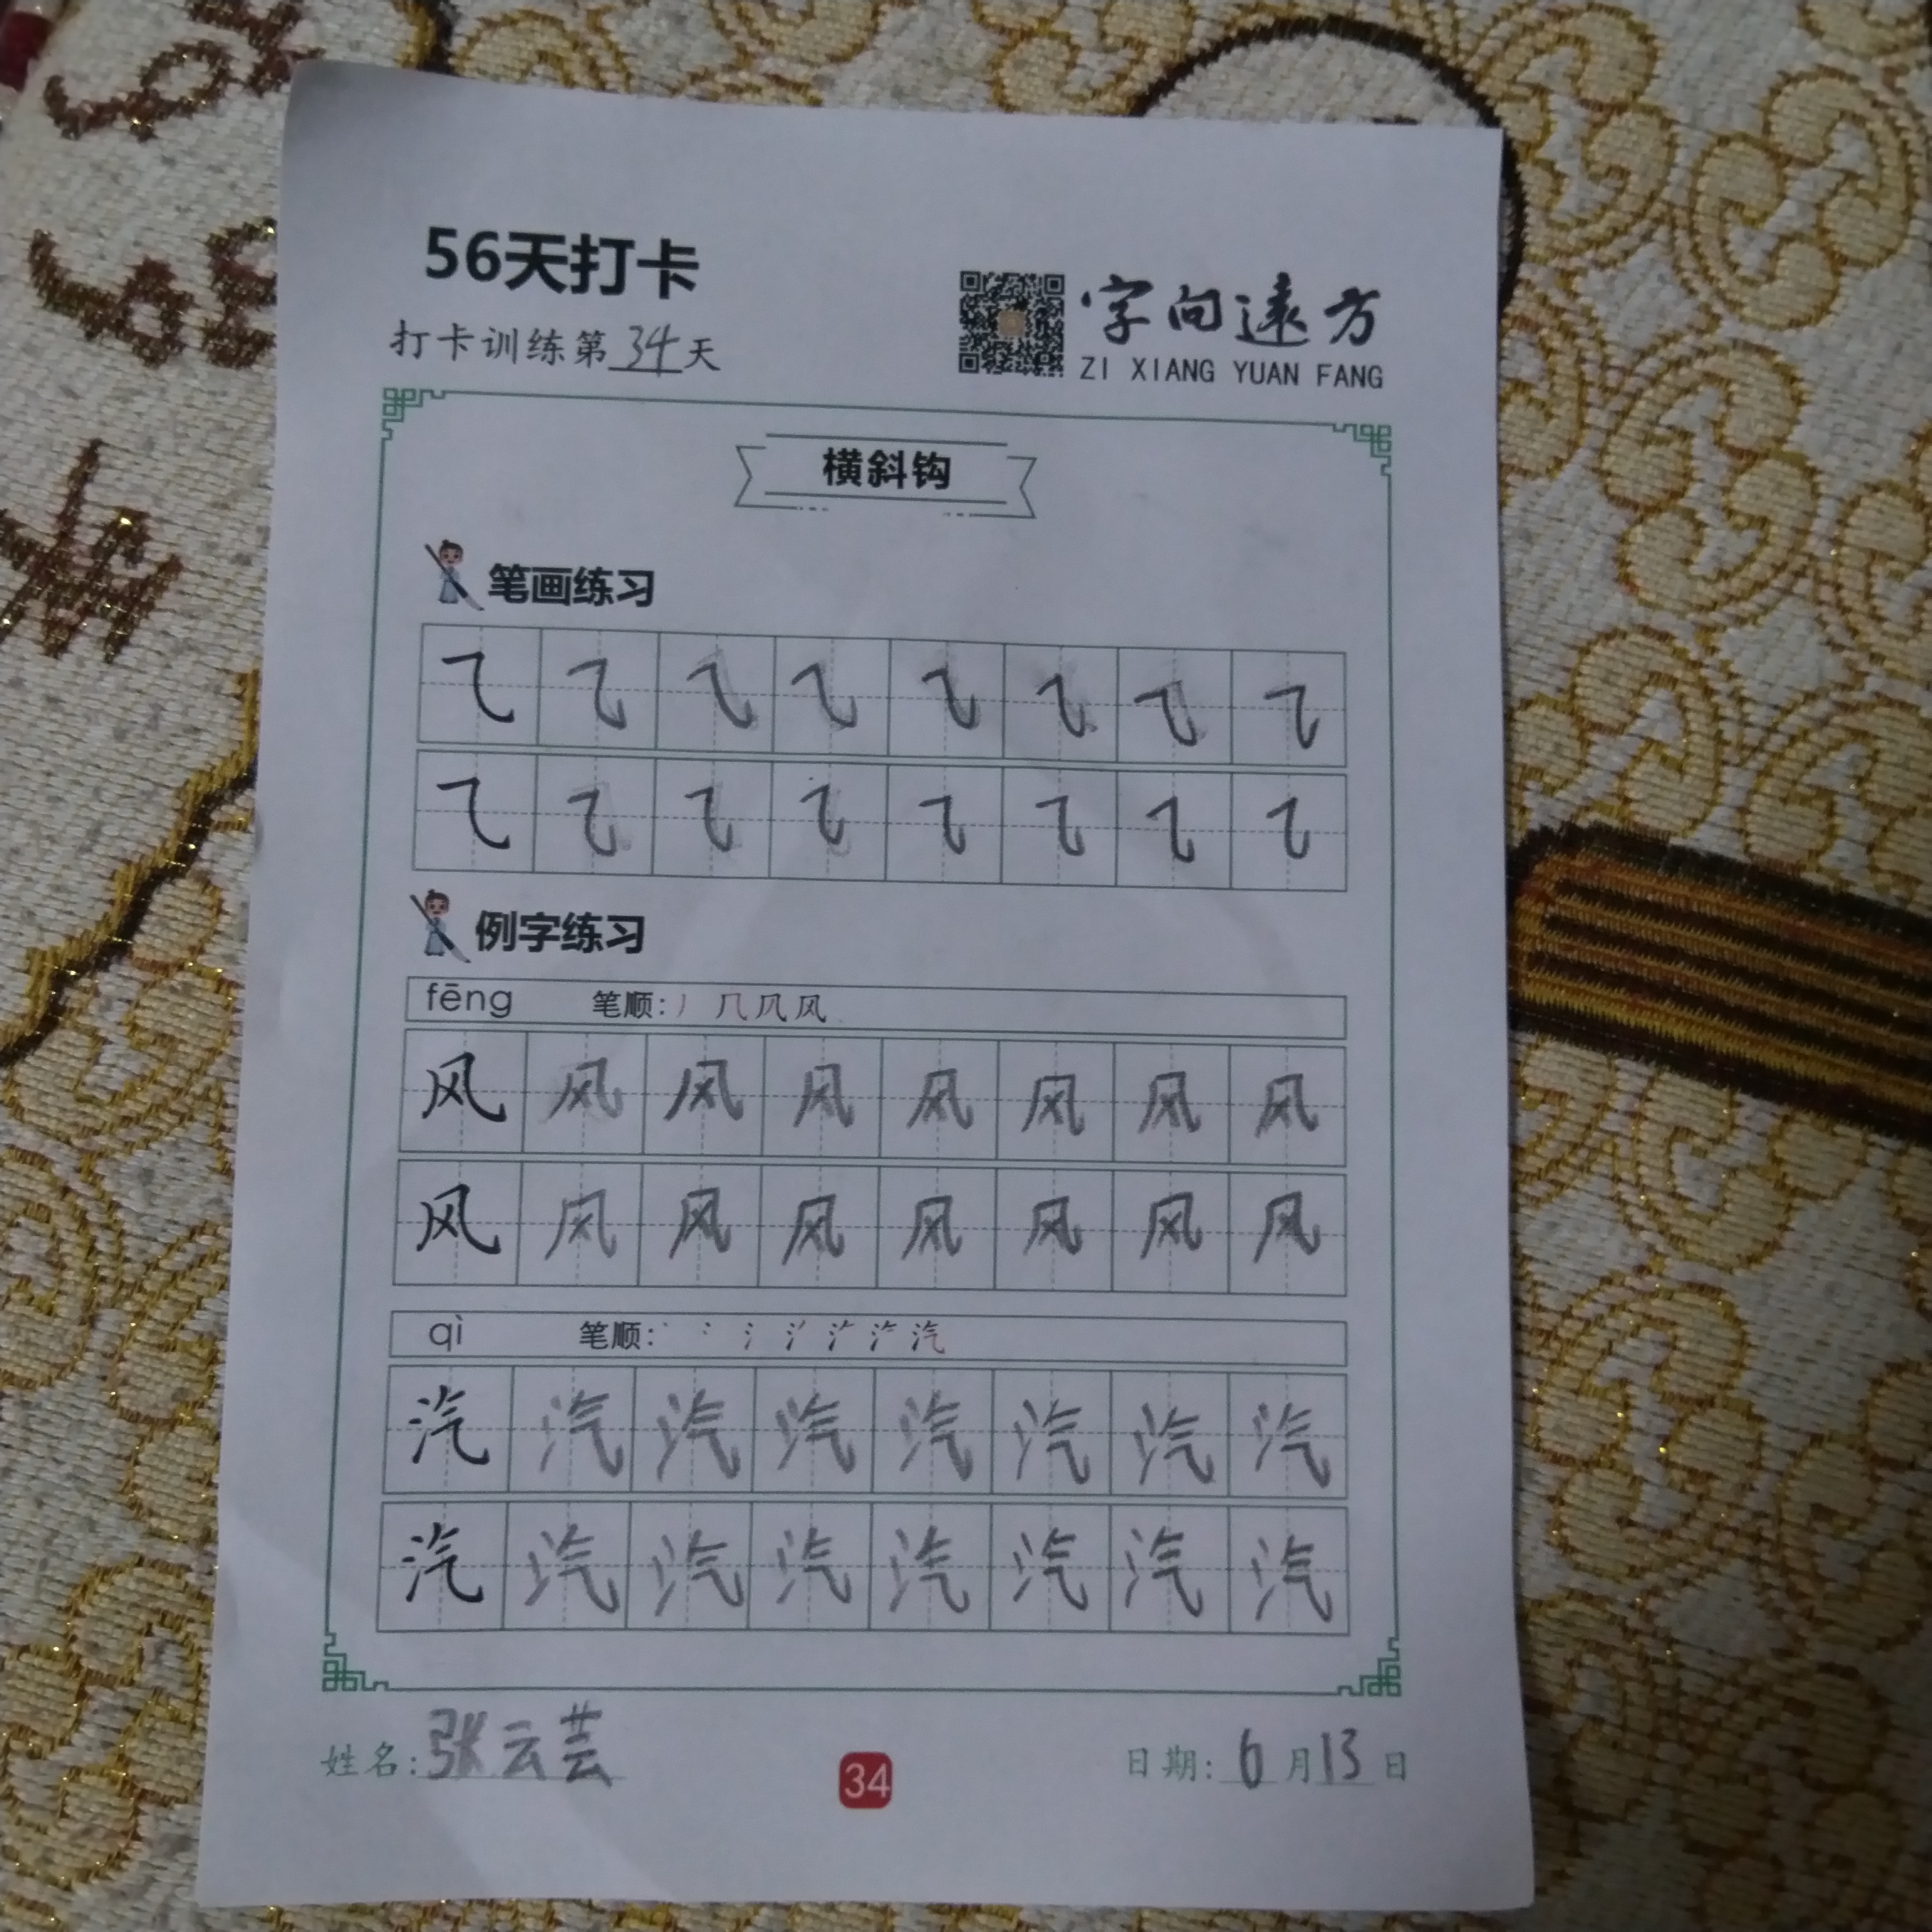 56天打卡
打卡训练第34天
字向遠方
ZI XIANG YUAN FANG
横斜钩
笔画练习
㇈ ㇈ ㇈ ㇈ ㇈ ㇈ ㇈ ㇈
㇈ ㇈ ㇈ ㇈ ㇈ ㇈ ㇈ ㇈
例字练习
fēng 笔顺: 丿 几 凤 风
风 风 风 风 风 风 风 风
风 风 风 风 风 风 风 风
qì 笔顺:
汽 汽 汽 汽 汽 汽 汽 汽
汽 汽 汽 汽 汽 汽 汽 汽
姓名: 张云芸
34
日期: 6月13日